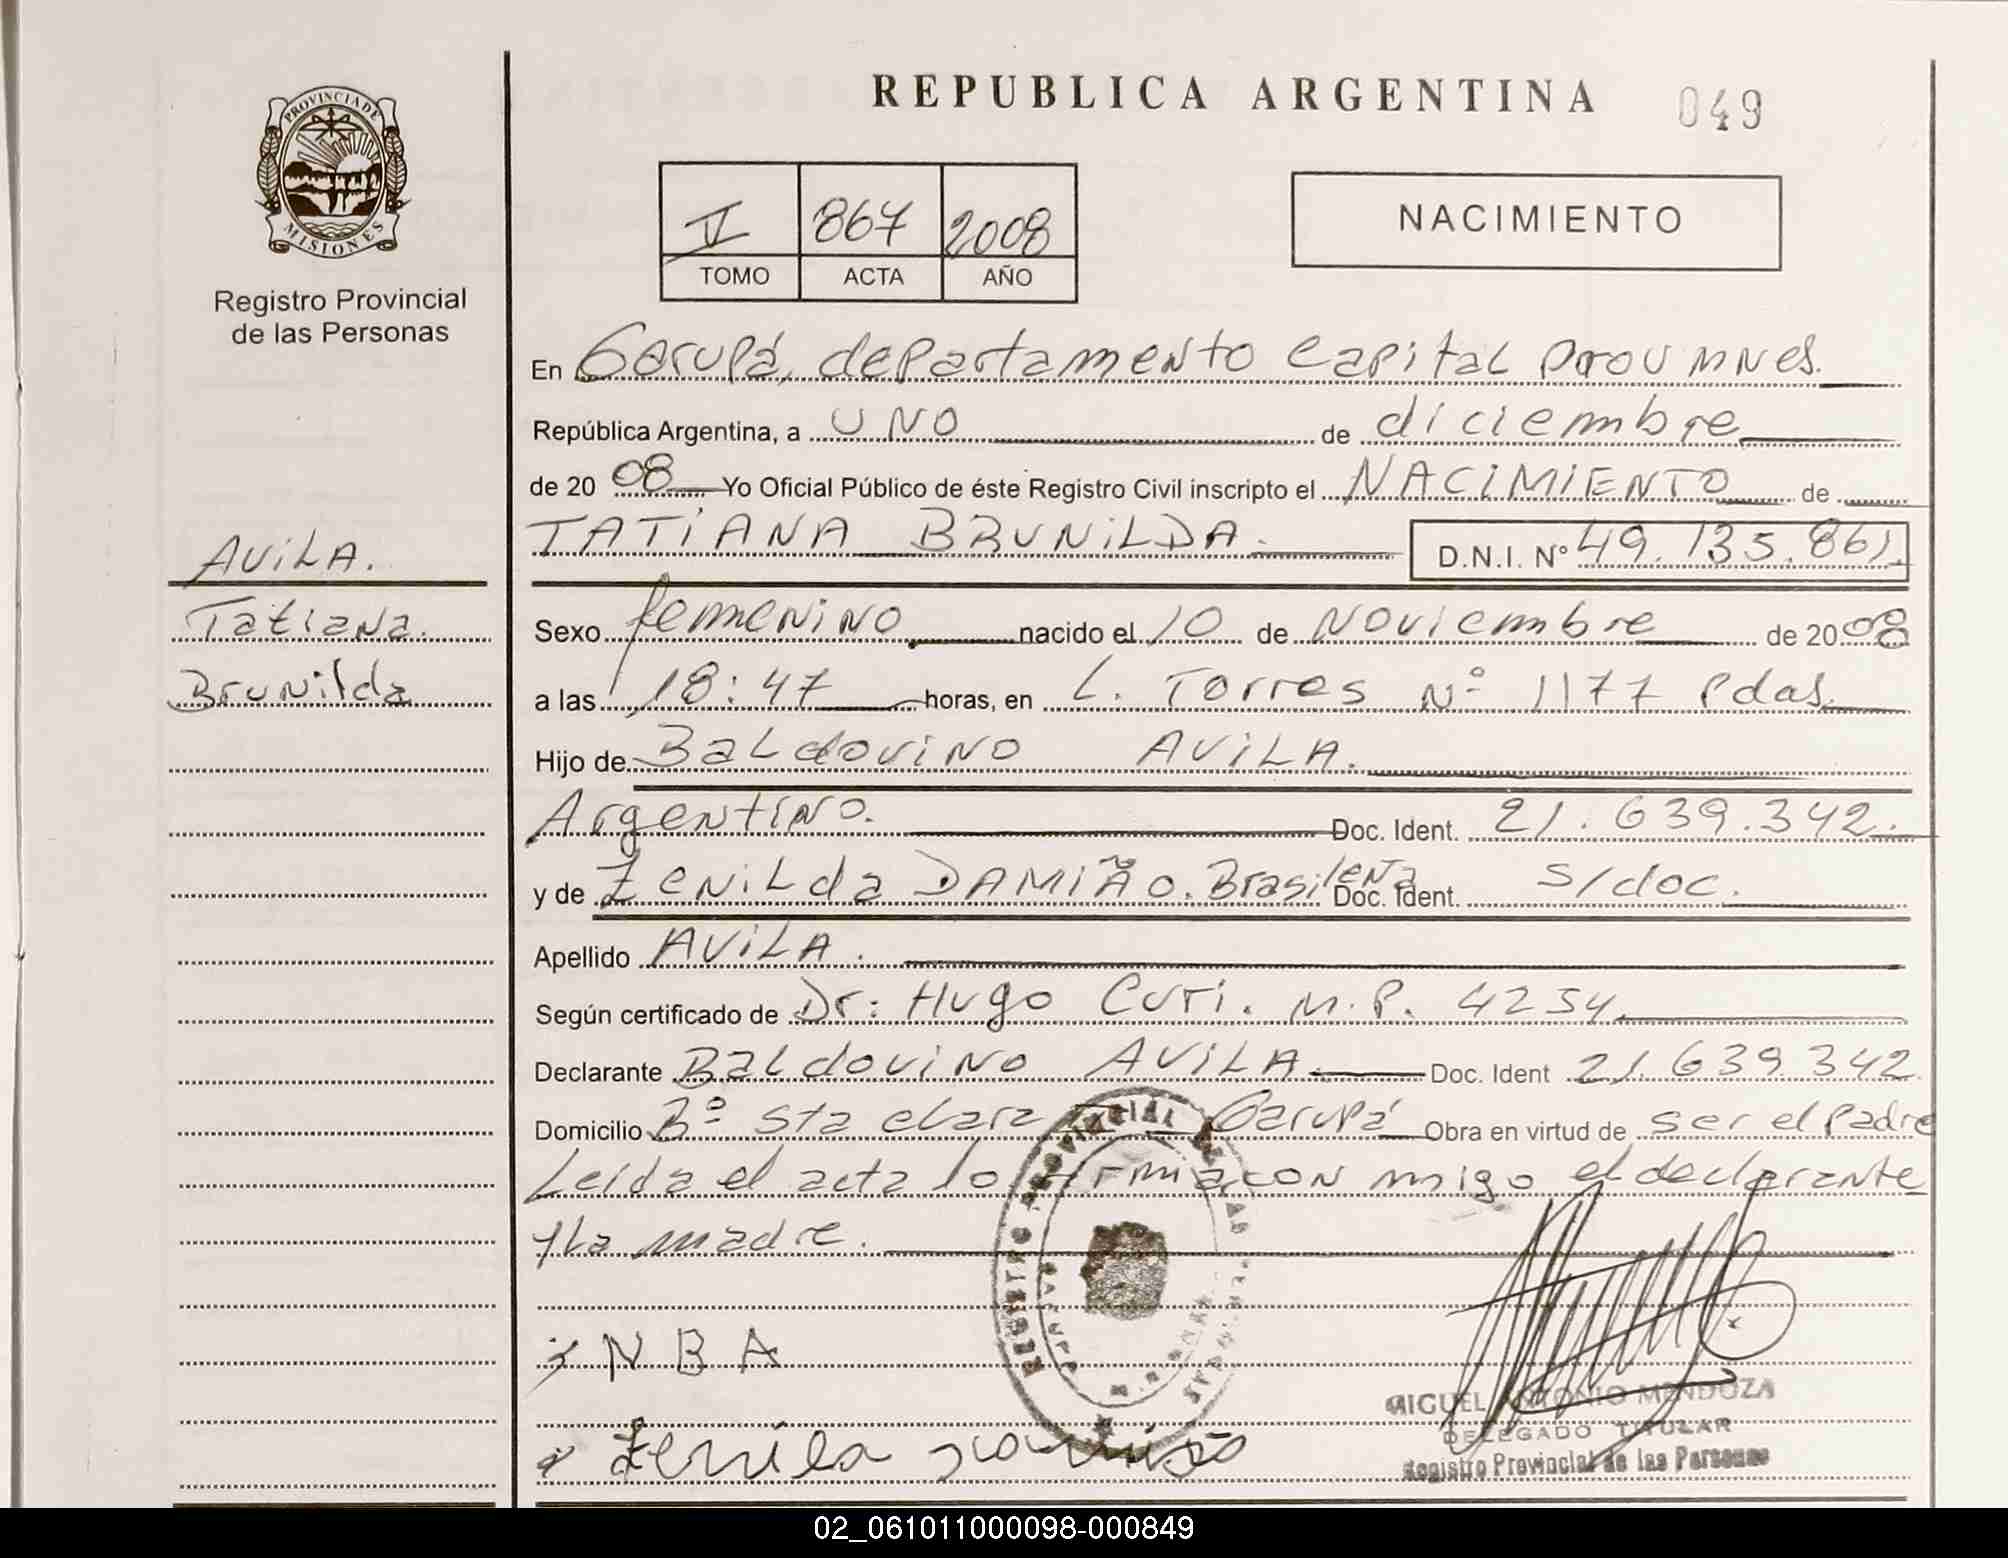 REPUBLICA ARGENTINA
049
PROVINCIA DE
MISIONES
Registro Provincial
de las Personas
V 867 2008
TOMO ACTA AÑO
NACIMIENTO
En Garupá, departamento Capital Prov MNes.
República Argentina, a UNO de diciembre
de 2008 Yo Oficial Público de éste Registro Civil inscripto el NACIMIENTO de
TATIANA BRUNILDA. D.N.I. Nº 49.135.861.
AVILA.
Tatiana.
Brunilda
Sexo femenino nacido el 10 de Noviembre de 2008
a las 18:47 horas, en L. Torres Nº 1177 Pdas.
Hijo de Baldovino AVILA.
Argentino. Doc. Ident. 21.639.342.
y de Zenilda DAMIÃO. Brasileña Doc. Ident. s/doc.
Apellido AVILA.
Según certificado de Dr: Hugo Curi. M.P. 4254.
Declarante Baldovino AVILA Doc. Ident 21.639.342
Domicilio Bº Sta Clara Garupá Obra en virtud de ser el padre
Leida el acta lo firma con migo el declarante
y la madre.
REGISTRO PROVINCIAL DE LAS PERSONAS
GARUPA
N B A
MIGUEL ANTONIO MENDOZA
DELEGADO TITULAR
Registro Provincial de las Personas
02_061011000098-000849